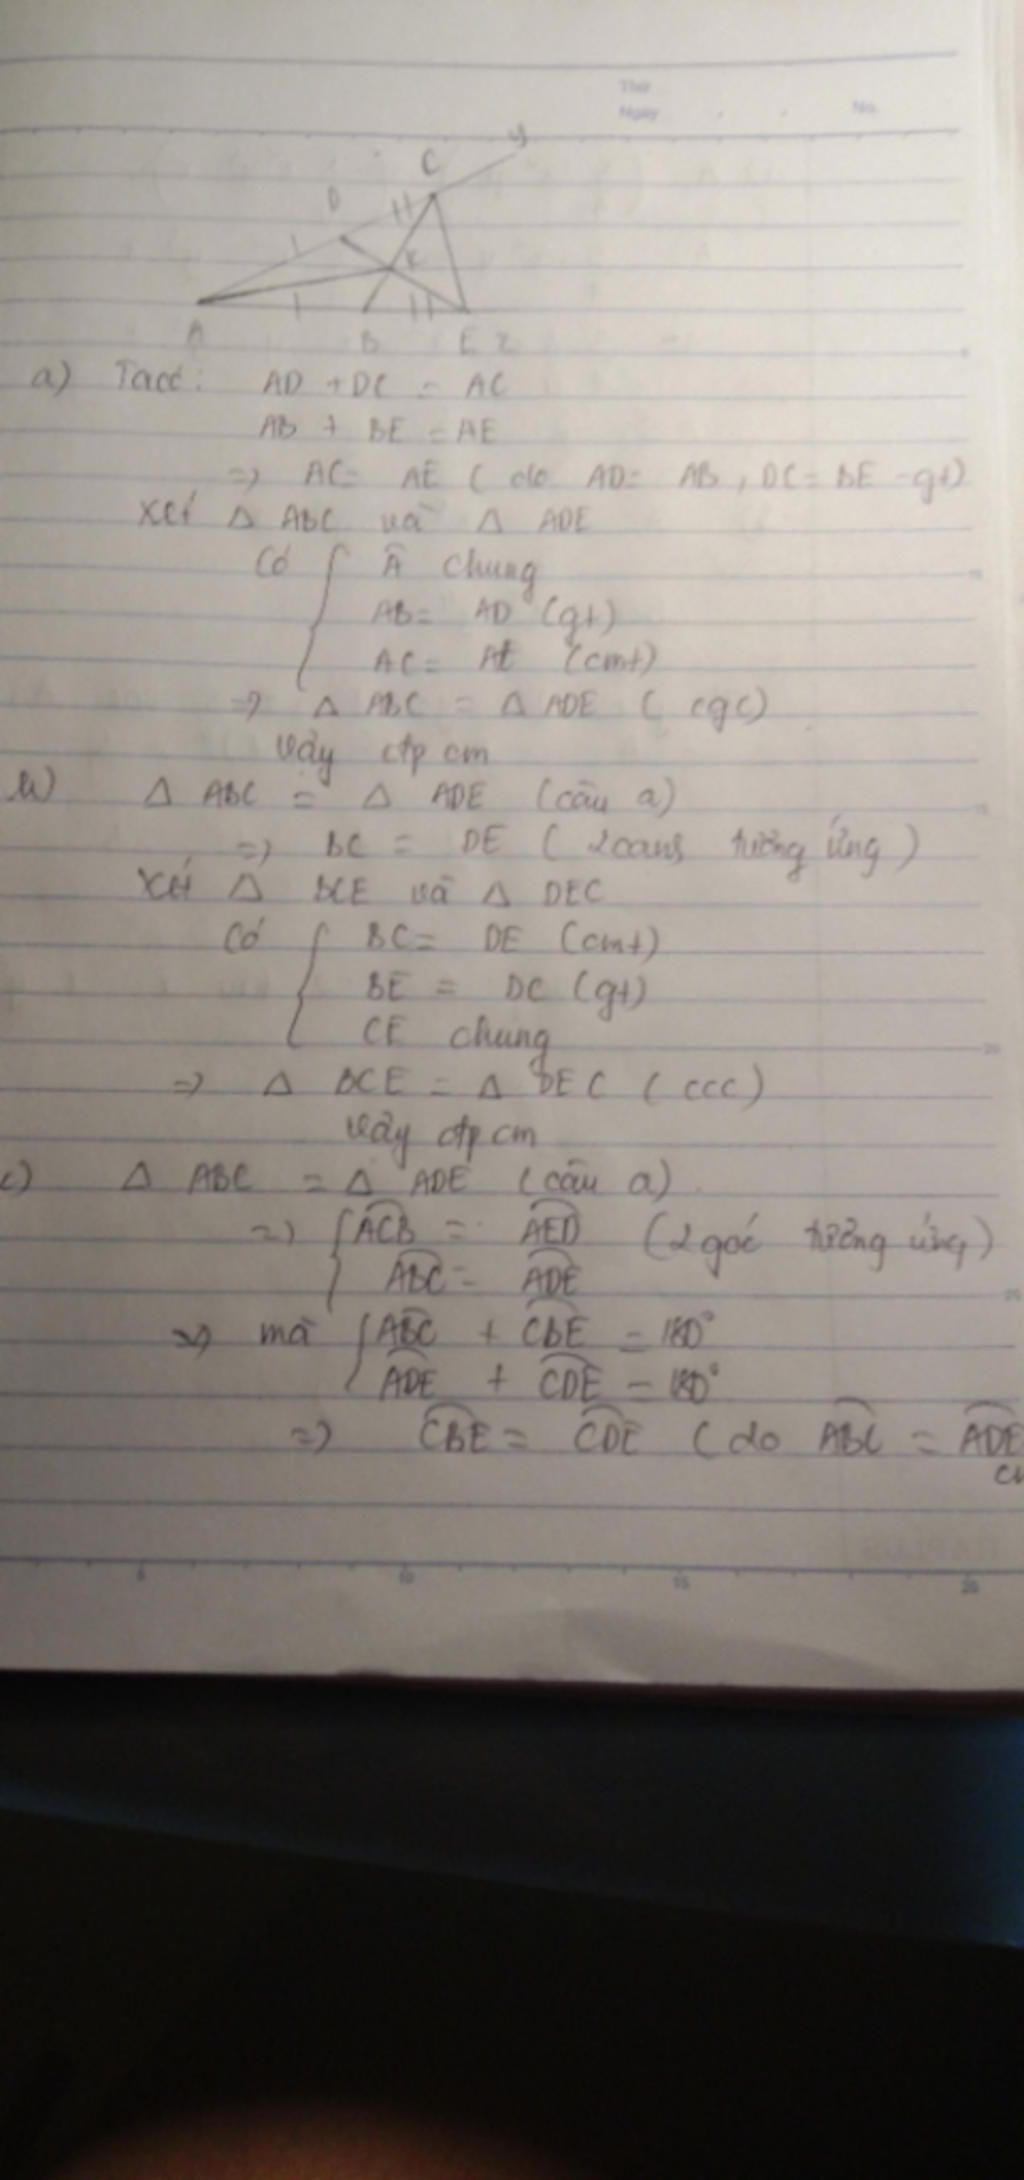 Thứ
Ngày . . No.
y
C
D
K
A B E z
a) Tacó: AD + DC = AC
AB + BE = AE
=> AC = AE ( do AD = AB, DC = BE - gt)
Xét Δ ABC và Δ ADE
Có { Â chung
AB = AD (gt)
AC = AE (cmt)
=> Δ ABC = Δ ADE ( cgc)
Vậy đpcm
b) Δ ABC = Δ ADE (câu a)
=> BC = DE ( 2 cạnh tương ứng )
Xét Δ BCE và Δ DEC
Có { BC = DE (cmt)
BE = DC (gt)
CE chung
=> Δ BCE = Δ DEC ( ccc)
Vậy đpcm
c) Δ ABC = Δ ADE (câu a)
=> { ACB = AED (2 góc tương ứng)
ABC = ADE
=> mà { ABC + CBE = 180°
ADE + CDE = 180°
=> CBE = CDE ( do ABC = ADE
5 10 15 20